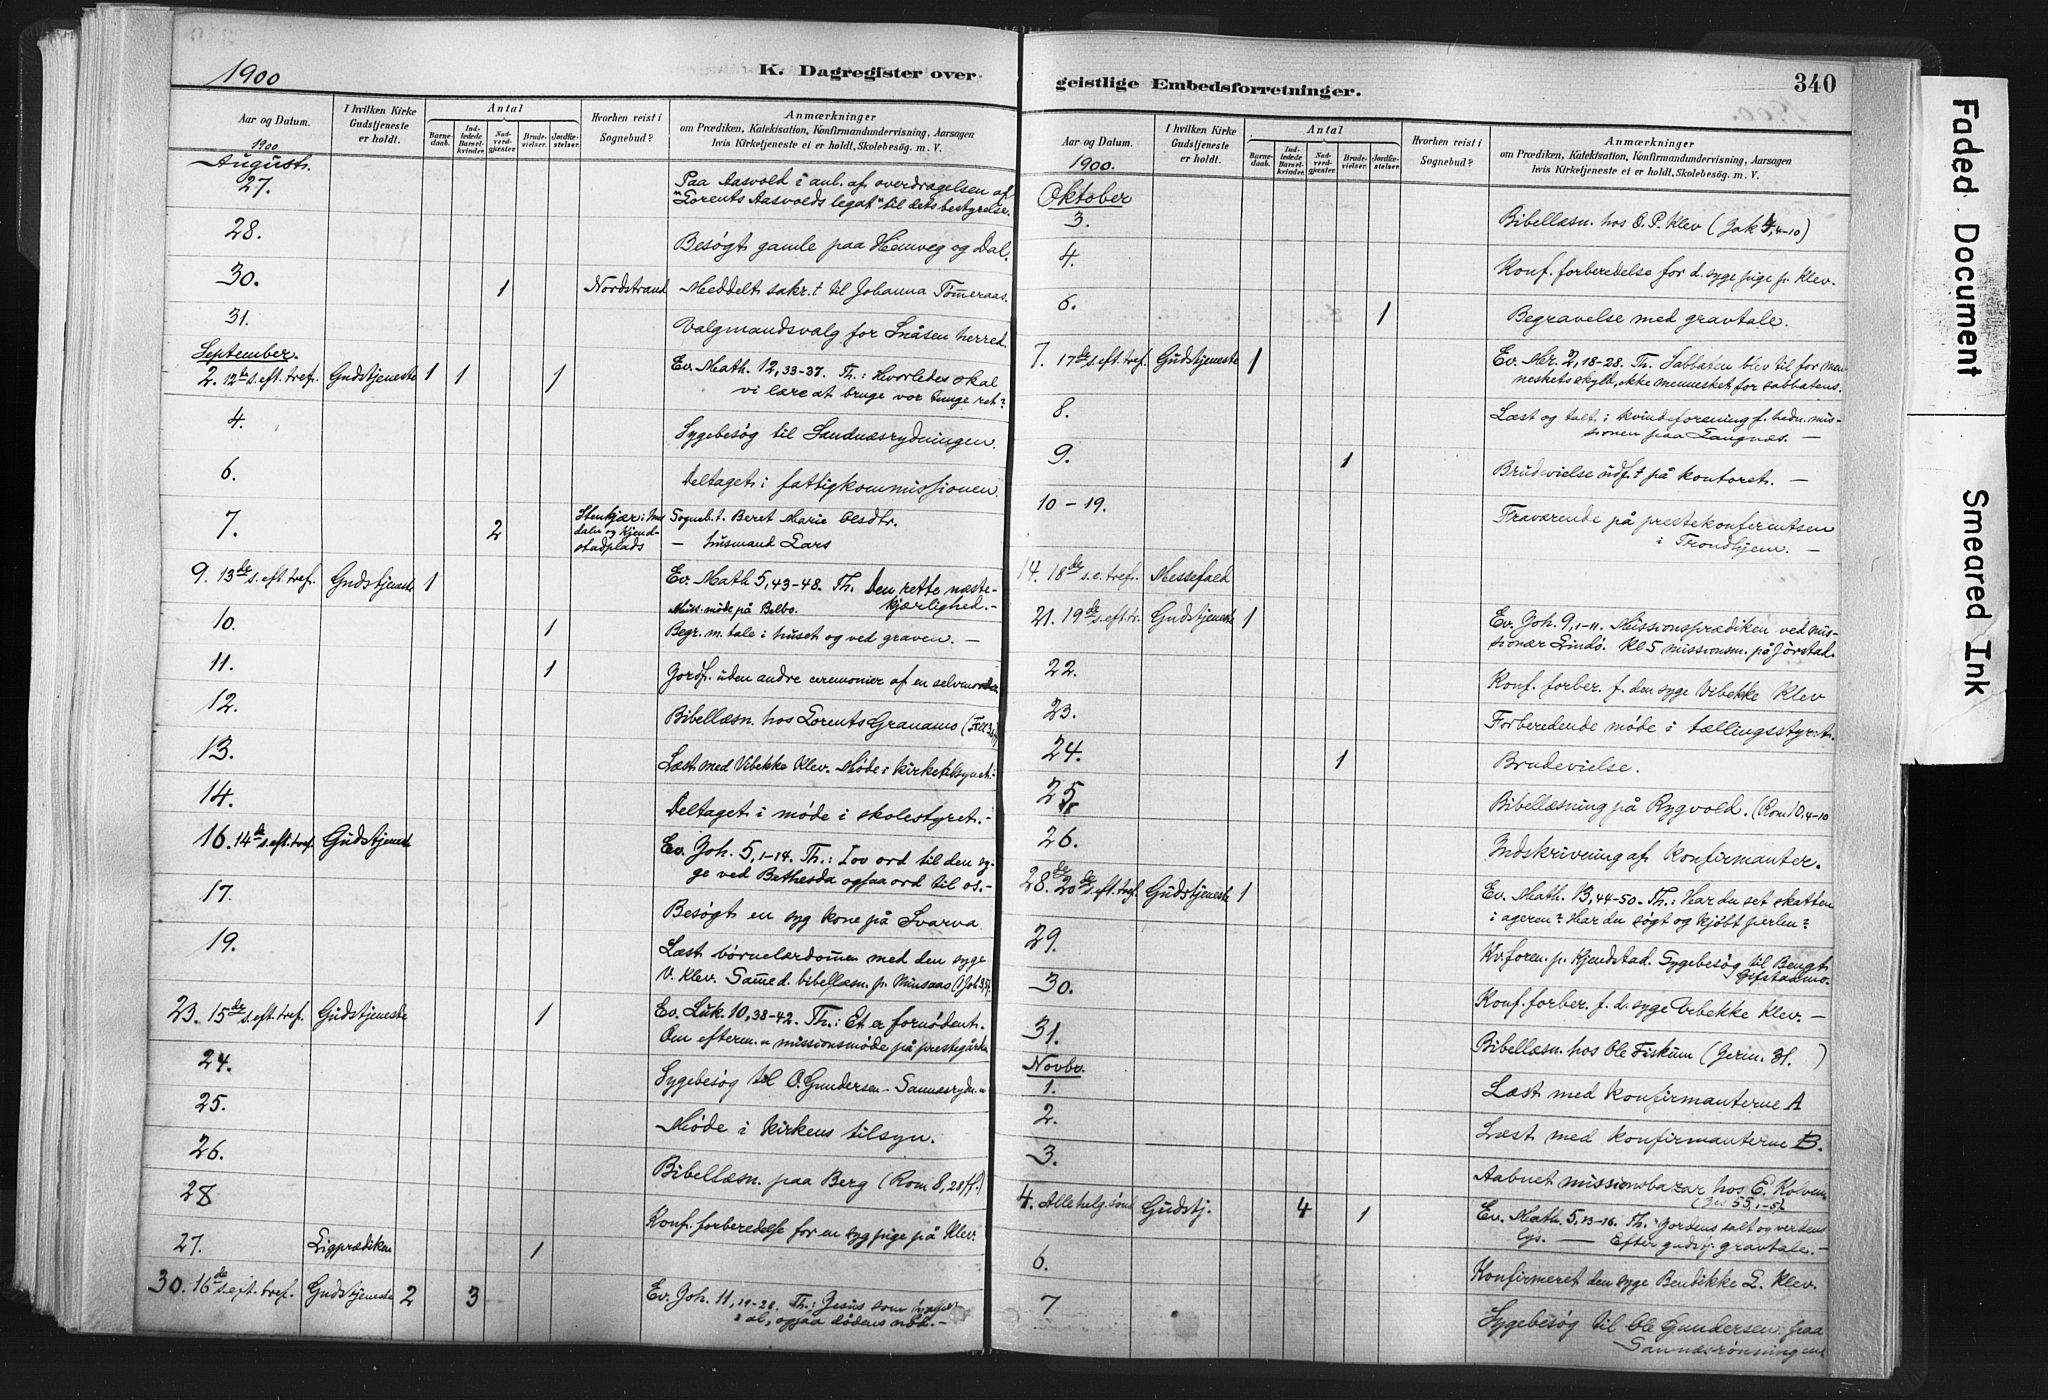 1900
K. Dagregister over
Aar og Datum.
I hvilken Kirke Gudstjeneste er holdt.
Antal
Barnedaab.
Indledede Barselkvinder.
Nadverdgjæster
Brudevielser.
Jordfæstelser.
Hvorhen reist i Sognebud?
Anmærkninger
om Prædiken, Katekisation, Konfirmandundervisning, Aarsagen
hvis Kirketjeneste ei er holdt, Skolebesøg. m. V.
1900
August.
27. Paa Aasvold i anl. af overdragelsen af
"Lorents Aasvolds legat" til dets bestyrelse.
28. Besøgt gamle paa Hemveg og Dal.
30. 1 Nordstrand Meddelt sakr.t til Johanna Tømeraas.
31. Valgmandsvalg for Snåsen herred.
September.
2. 12te s. eft. tref. Gudstjeneste 1 1 1 Ev. Math. 12, 33-37. Th.: Hvorledes skal
vi lære at bruge vor tunge ret?
4. Sygebesøg til Sandnæsrydningen.
6. Deltaget i fattigkommissionen.
7. 2 Stenkjær i
dalen og Kjend-
stadplads
Sogneb. t. Beret Marie Olsdtr.
— husmand Lars
9. 13de s. eft. tref. Gudstjeneste 1 Ev. Math 5, 43-48. Th. Den rette næste-
kjærlighed.-
Miss. møde på Belbo.
10. 1 Begr. m. tale i huset og ved graven. —
11. 1 Jordf. uden andre ceremonier af en selvmorder
12. Bibellæsn. hos Lorents Granamo
13. Læst med Vibekke Klev. Møde i kirketilsynet.-
14. Deltaget i møde i skolestyret.-
16. 14de s. eft. tref. Gudstjeneste Ev. Joh. 5, 1-14. Th.: Tov ord til den sy-
ge ved Bethesda ogsaa ord til os.-
17. Besøgt en syg kone på Svarva
19. Læst børnelærdommen med den syge
V. Klev. Samme d. bibellæsn. p. Minsaas
23. 15de s. eft. tref. Gudstjeneste 1 Ev. Luk. 10, 38-42. Th.: Et er fornødent.
Om efterm. missionsmøde på prestegården
24. Sygebesøg til O. Gundersen - Sannesrydn.
25. Møde i kirkens tilsyn.
26. Bibellæsn. paa Berg (Rom 8, 28 ff.)
28 Konf. forberedelse for en syg pige på Klev.
27. Ligprædiken 1
30. 16de s. eft. tref. Gudstjeneste 2 3 Ev. Joh. 11, 19-28. Th.: Jesus som
al, ogsaa dødens nød.-
geistlige Embedsforretninger.
340
Aar og Datum.
I hvilken Kirke Gudstjeneste er holdt.
Antal
Barnedaab.
Indledede Barselkvinder.
Nadverdgjæster
Brudevielser.
Jordfæstelser.
Hvorhen reist i Sognebud?
Anmærkninger
om Prædiken, Katekisation, Konfirmandundervisning, Aarsagen
hvis Kirketjeneste ei er holdt, Skolebesøg. m. V.
1900.
Oktober
3. Bibellæsn. hos O. P. Klev (Jak 4, 4-10)
4. Konf. forberedelse for d. syge pige p. Klev.
6. 1 Begravelse med gravtale.
7. 17de s. eft. tref. Gudstjeneste 1 Ev. Mr. 2, 18-28. Th. Sabbaten blev til for men-
neskets skyld, ikke mennesket for sabbatens.
8. Læst og talt i kvindeforening f. hedn. mis-
sionen paa Langnæs. —
9. 1 Brudevielse udf.t på kontoret. —
10 - 19. Fraværende på prestekonferentsen
i Trondhjem. —
14. 18de s. e. tref. Messefald
21. 19de s. eft. tr. Gudstjeneste 1 Ev. Joh. 9, 1-11. Missionsprædiken ved mis-
sionær Lindö. Kl 5 missionsm. på Jörstad.
22. Konf. forber. f. den syge Vebekke Klev
23. Forberedende møde i tællingsstyret.
24. 1 Brudevielse.
25 Bibellæsning på Rygvold. (Rom 10, 4-10
26. Indskrivning af konfirmanter.
28. 20de s. eft. tref. Gudstjeneste 1 Ev. Math. 13, 44-50. Th.: Har du set skatten
i ageren? Har du søgt og kjøbt perlen?
29. Kv. foren. p. Kjendstad. Sygebesøg til Bengt
Gifstadmo.
30. Konf. forber. f. d. syge Vebekke Klev. —
31. Bibellæsn. hos Ole Fiskum (Jerm. 31. )
Novbr.
1. Læst med konfirmanterne A
2. Læst med konfirmanterne B.
3. Aabnet missionsbazar hos E. Kolven
(Jes 55, 1-5).
4. Alle helg. sönd Gudstj. 4 1 Ev. Math. 5, 13-16. Th. "Jordens salt og verdens
lys. — Efter gudstj. gravtale.-
6. Konfirmeret den syge Bendikke L. Klev.
7 Sygebesøg til Ole Gundersen paa
Sannæsrønningen
Faded Document
Smeared Ink